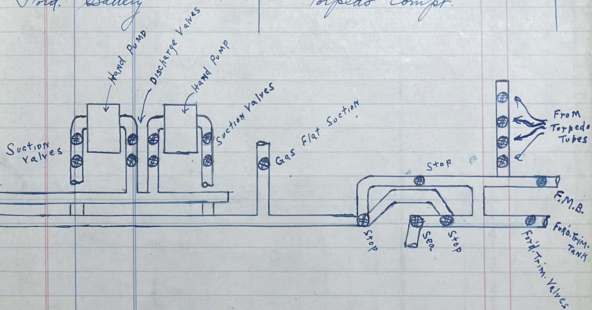 Ford. Battery
Torpedo Compt.
Hand Pump
Discharge Valves
Hand Pump
Suction
Valves
Suction Valves
Gas Flat Suction
From
Torpedo
Tubes
Stop
F.M.B.
Stop
Sea
Stop
Ford. Trim.
Tank
Ford. Trim. Valves